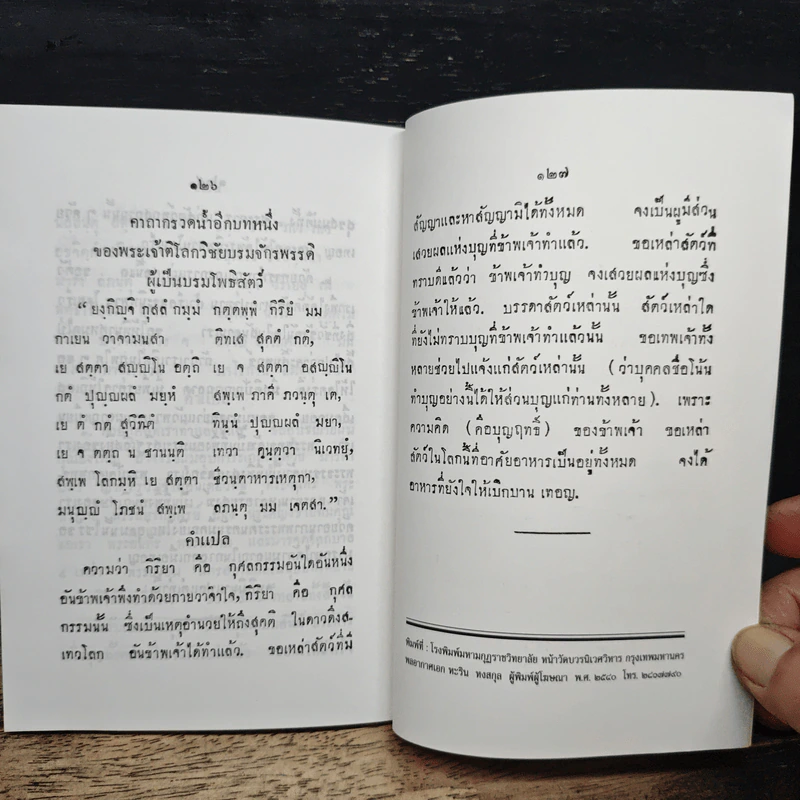 ๑๒๖
คาถากรวดน้ำอีกบทหนึ่ง
ของพระเจ้าติโลกวิชัยบรมจักรพรรดิ
ผู้เป็นบรมโพธิสัตว์
“ยงฺกิญฺจิ กุสลํ กมฺมํ กตฺตพฺพํ กิริยํ มม
กาเยน วาจามนสา ติทเส สุคตํ กตํ,
เย สตฺตา สญฺญิโน อตฺถิ เย จ สตฺตา อสญฺญิโน
กตํ ปุญฺญผลํ มยฺหํ สพฺเพ ภาคี ภวนฺตุ เต,
เย ตํ กตํ สุวิทิตํ ทินฺนํ ปุญฺญผลํ มยา,
เย จ ตตฺถ น ชานนฺติ เทวา คนฺตฺวา นิเวทยุํ,
สพฺเพ โลกมฺหิ เย สตฺตา ชีวนฺตาหารเหตุกา,
มนุญฺญํ โภชนํ สพฺเพ ลภนฺตุ มม เจตสา.”
คำแปล
ความว่า กิริยา คือ กุศลกรรมอันใดอันหนึ่ง
อันข้าพเจ้าพึงทำด้วยกายวาจาใจ, กิริยา คือ กุศล
กรรมนั้น ซึ่งเป็นเหตุอำนวยให้ถึงสุคติ ในดาวดึงส-
เทวโลก อันข้าพเจ้าได้ทำแล้ว. ขอเหล่าสัตว์ที่มี
๑๒๗
สัญญาและหาสัญญามิได้ทั้งหมด จงเป็นผู้มีส่วน
เสวยผลแห่งบุญที่ข้าพเจ้าทำแล้ว. ขอเหล่าสัตว์ที่
ทราบดีแล้วว่า ข้าพเจ้าทำบุญ จงเสวยผลแห่งบุญซึ่ง
ข้าพเจ้าให้แล้ว. บรรดาสัตว์เหล่านั้น สัตว์เหล่าใด
ที่ยังไม่ทราบบุญที่ข้าพเจ้าทำแล้วนั้น ขอเทพเจ้าทั้ง
หลายช่วยไปแจ้งแก่สัตว์เหล่านั้น (ว่าบุคคลชื่อโน้น
ทำบุญอย่างนี้ได้ให้ส่วนบุญแก่ท่านทั้งหลาย). เพราะ
ความคิด (คือบุญฤทธิ์) ของข้าพเจ้า ขอเหล่า
สัตว์ในโลกนี้ที่อาศัยอาหารเป็นอยู่ทั้งหมด จงได้
อาหารที่ยังใจให้เบิกบาน เทอญ.
พิมพ์ที่ : โรงพิมพ์มหามกุฏราชวิทยาลัย หน้าวัดบวรนิเวศวิหาร กรุงเทพมหานคร
พลอากาศเอก หะริน หงสกุล ผู้พิมพ์ผู้โฆษณา พ.ศ. ๒๕๔๐ โทร. ๒๘๐๗๗๙๐